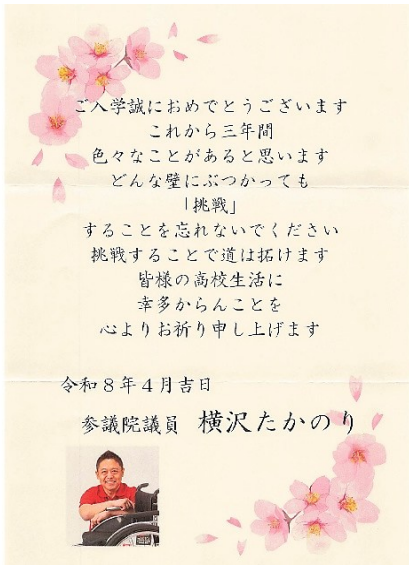 ご入学誠におめでとうございます
これから三年間
色々なことがあると思います
どんな壁にぶつかっても
「挑戦」
することを忘れないでください
挑戦することで道は拓けます
皆様の高校生活に
幸多からんことを
心よりお祈り申し上げます
令和８年４月吉日
参議院議員 横沢たかのり